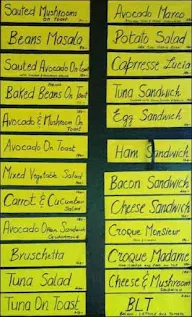 Sauted Mushrooms
On Toast
Beans Masala
Sauted Avocado On Toast
Baked Beans On Toast
Avocado & Mushroom On
Toast
Avocado On Toast
Mixed Vegetable Salad
Carrot & Cucumber
Salad
Avocado Open Sandwich
Bruschetta
Tuna Salad
Tuna On Toast
Avocado Marco
Potato Salad
Caprresse Lucia
Tuna Sandwich
Egg Sandwich
Ham Sandwich
Bacon Sandwich
Cheese Sandwich
Croque Monsieur
Croque Madame
Cheese & Mushroom
Sandwich
BLT
Bacon Lettuce And Tomato